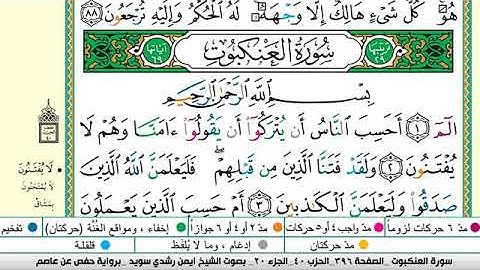 هُوَ ۚ كُلُّ شَىْءٍ هَالِكٌ إِلَّا وَجْهَهُۥ ۚ لَهُ ٱلْحُكْمُ وَإِلَيْهِ تُرْجَعُونَ ٨٨
ترتيبها ٢٩ سُورَةُ الْعَنْكَبُوتِ آياتها ٦٩
بِسْمِ ٱللَّهِ ٱلرَّحْمَٰنِ ٱلرَّحِيمِ
الٓمٓ ١ أَحَسِبَ ٱلنَّاسُ أَن يُتْرَكُوٓا۟ أَن يَقُولُوٓا۟ ءَامَنَّا وَهُمْ لَا
يُفْتَنُونَ ٢ وَلَقَدْ فَتَنَّا ٱلَّذِينَ مِن قَبْلِهِمْ ۖ فَلَيَعْلَمَنَّ ٱللَّهُ ٱلَّذِينَ
صَدَقُوا۟ وَلَيَعْلَمَنَّ ٱلْكَٰذِبِينَ ٣ أَمْ حَسِبَ ٱلَّذِينَ يَعْمَلُونَ
لَا يُفْتَنُونَ
لا يُمْتَحَنُون
بمشاقّ
مدّ ٦ حركات لزوماً مدّ واجب ٤ أو ٥ حركات مدّ ٢ أو ٤ أو ٦ جوازاً إخفاء ، ومواقع الغُنّة (حركتان) تفخيم
مدّ حركتان إدغام ، وما لا يُلفَظ قلقلة
سورة العنكبوت _ الصفحة ٣٩٦ _ الحزب ٤٠ _ الجزء ٢٠ _ بصوت الشيخ أيمن رشدي سويد _ برواية حفص عن عاصم